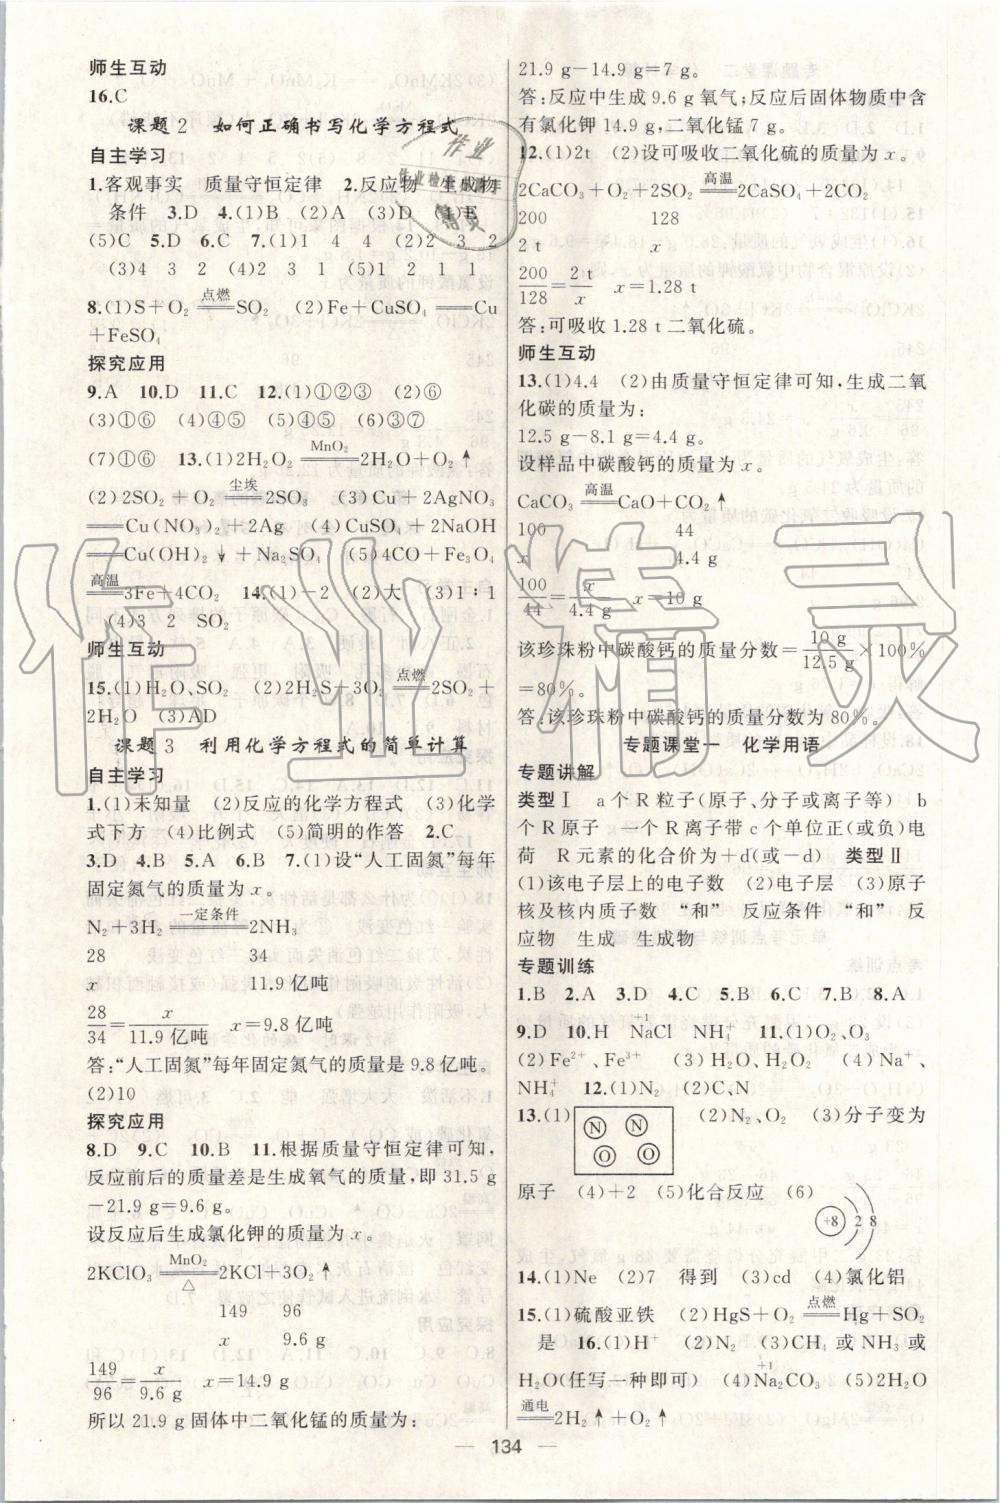 师生互动
16.C
课题2 如何正确书写化学方程式
自主学习
1.客观事实 质量守恒定律 2.反应物 生成物
条件 3.D 4.(1)B (2)A (3)D (4)E
(5)C 5.D 6.C 7.(1)1 4 4 (2)2 3 2
(3)4 3 2 (4)2 3 1 (5)1 2 1 1
8.(1)S+O₂ =点燃= SO₂ (2)Fe+CuSO₄ == Cu
+FeSO₄
探究应用
9.A 10.D 11.C 12.(1)①②③ (2)⑥
(3)①⑥ (4)④⑤ (5)④⑤ (6)③⑦
(7)①⑥ 13.(1)2H₂O₂ =MnO₂= 2H₂O+O₂↑
(2)2SO₂+O₂ =尘埃= 2SO₃ (3)Cu+2AgNO₃
== Cu(NO₃)₂+2Ag (4)CuSO₄+2NaOH
== Cu(OH)₂↓+Na₂SO₄ (5)4CO+Fe₃O₄
=高温= 3Fe+4CO₂ 14.(1)-2 (2)大 (3)1:1
(4)3 2 SO₂
师生互动
15.(1)H₂O、SO₂ (2)2H₂S+3O₂ =点燃= 2SO₂+
2H₂O (3)AD
课题3 利用化学方程式的简单计算
自主学习
1.(1)未知量 (2)反应的化学方程式 (3)化学
式下方 (4)比例式 (5)简明的作答 2.C
3.D 4.B 5.A 6.B 7.(1)设“人工固氮”每年
固定氮气的质量为x。
N₂+3H₂ =一定条件= 2NH₃
28 34
x 11.9亿吨
28/34=x/11.9亿吨 x=9.8亿吨
答:“人工固氮”每年固定氮气的质量是9.8亿吨。
(2)10
探究应用
8.D 9.C 10.B 11.根据质量守恒定律可知,
反应前后的质量差是生成氧气的质量,即31.5 g
-21.9 g=9.6 g。
设反应后生成氯化钾的质量为x。
2KClO₃ =MnO₂/△= 2KCl+3O₂↑
149 96
x 9.6 g
149/96=x/9.6 g x=14.9 g
所以21.9 g固体中二氧化锰的质量为:
21.9 g-14.9 g=7 g。
答:反应中生成9.6 g氧气;反应后固体物质中含
有氯化钾14.9 g,二氧化锰7 g。
12.(1)2t (2)设可吸收二氧化硫的质量为x。
2CaCO₃+O₂+2SO₂ =高温= 2CaSO₄+2CO₂
200 128
2 t x
200/128=2 t/x x=1.28 t
答:可吸收1.28 t二氧化硫。
师生互动
13.(1)4.4 (2)由质量守恒定律可知,生成二氧
化碳的质量为:
12.5 g-8.1 g=4.4 g。
设样品中碳酸钙的质量为x。
CaCO₃ =高温= CaO+CO₂↑
100 44
x 4.4 g
100/44=x/4.4 g x=10 g
该珍珠粉中碳酸钙的质量分数=10 g/12.5 g×100%
=80%。
答:该珍珠粉中碳酸钙的质量分数为80%。
专题课堂一 化学用语
专题讲解
类型Ⅰ a个R粒子(原子、分子或离子等) b
个R原子 一个R离子带c个单位正(或负)电
荷 R元素的化合价为+d(或-d) 类型Ⅱ
(1)该电子层上的电子数 (2)电子层 (3)原子
核及核内质子数 “和” 反应条件 “和” 反
应物 生成 生成物
专题训练
1.B 2.A 3.D 4.C 5.B 6.C 7.B 8.A
9.D 10.H N⁺¹aCl NH₄⁺ 11.(1)O₂、O₃
(2)Fe²⁺、Fe³⁺ (3)H₂O、H₂O₂ (4)Na⁺、
NH₄⁺ 12.(1)N₂ (2)C、N
13.(1) N N O O (2)N₂、O₂ (3)分子变为
原子 (4)+2 (5)化合反应 (6) +8 2 8
14.(1)Ne (2)7 得到 (3)cd (4)氯化铝
15.(1)硫酸亚铁 (2)HgS+O₂ =点燃= Hg+SO₂
是 16.(1)H⁺ (2)N₂ (3)CH₄或NH₃或
H₂O(任写一种即可) (4)N⁺¹a₂CO₃ (5)2H₂O
=通电= 2H₂↑+O₂↑
134
作业精灵